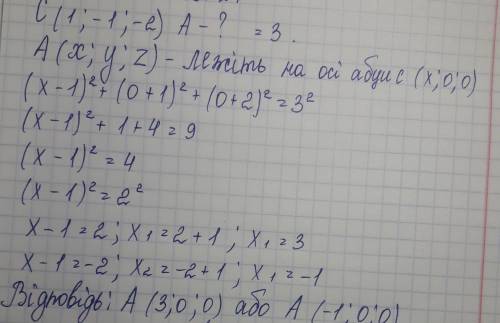 C (1; -1; -2) A - ? = 3.
A (x; y; z) - лежіть на осі абцис (x; 0; 0)
(x - 1)² + (0 + 1)² + (0 + 2)² = 3²
(x - 1)² + 1 + 4 = 9
(x - 1)² = 4
(x - 1)² = 2²
x - 1 = 2; x₁ = 2 + 1; x₁ = 3
x - 1 = -2; x₂ = -2 + 1; x₁ = -1
Відповідь: A (3; 0; 0) або A (-1; 0; 0)